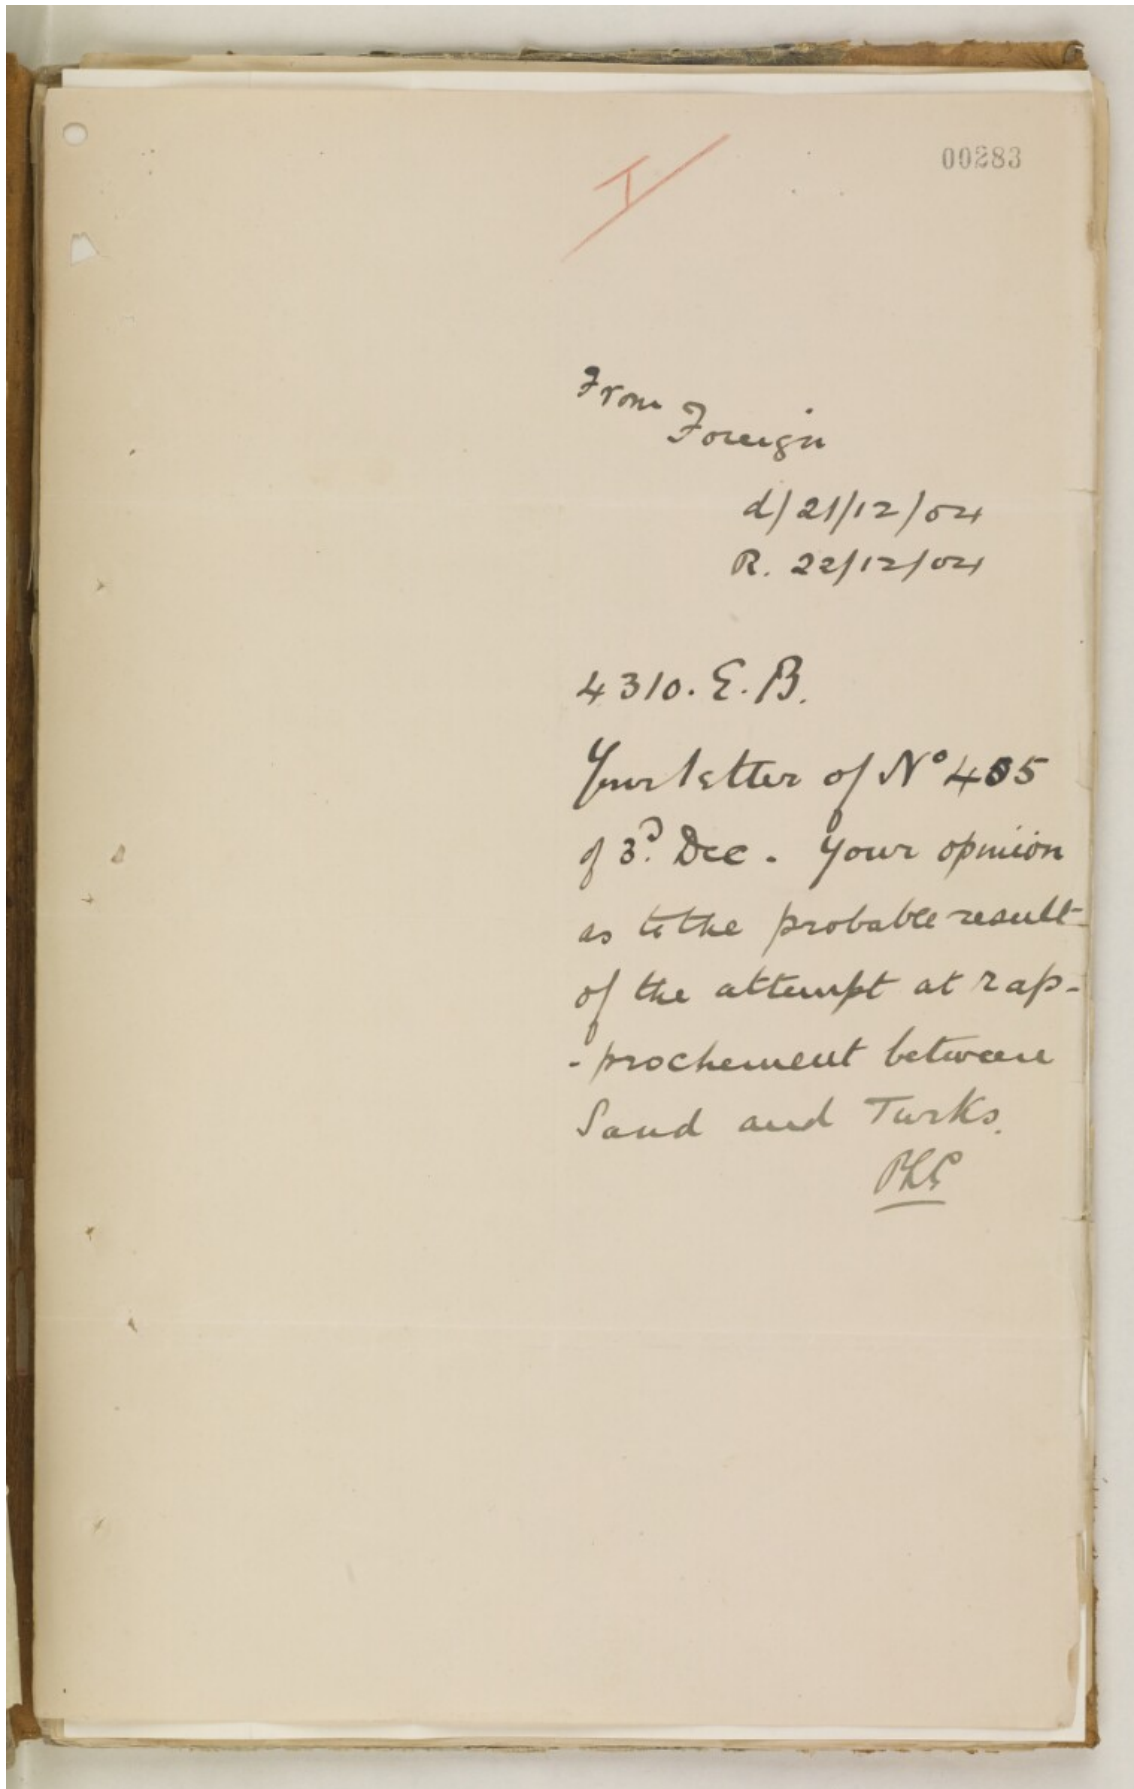 00283
I
From
Foreign
d/21/12/04
R. 22/12/04
4310. E. B.
Your letter of Nº 485
of 3d. Dec. Your opinion
as to the probable result
of the attempt at rap-
-prochement between
Saud and Turks.